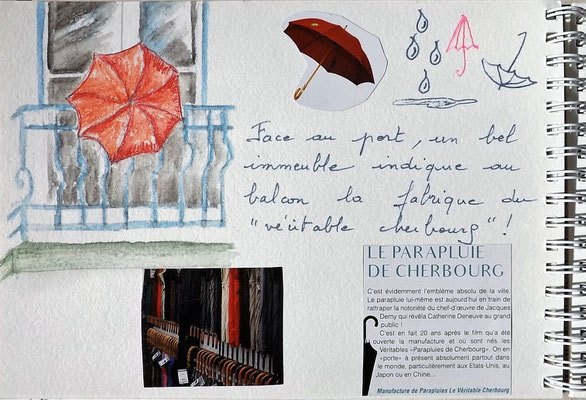 Face au port, un bel
immeuble indique au
balcon la fabrique du
"véritable cherbourg" !
LE PARAPLUIE
DE CHERBOURG
C'est évidemment l'emblème absolu de la ville.
Le parapluie lui-même est aujourd'hui en train de
rattraper la notoriété du chef-d'œuvre de Jacques
Demy qui révéla Catherine Deneuve au grand
public !
C'est en fait 20 ans après le film qu'a été
ouverte la manufacture et où sont nés les
Véritables «Parapluies de Cherbourg». On en
«porte» à présent absolument partout dans
le monde, particulièrement aux Etats-Unis, au
Japon ou en Chine...
Manufacture de Parapluies Le Véritable Cherbourg